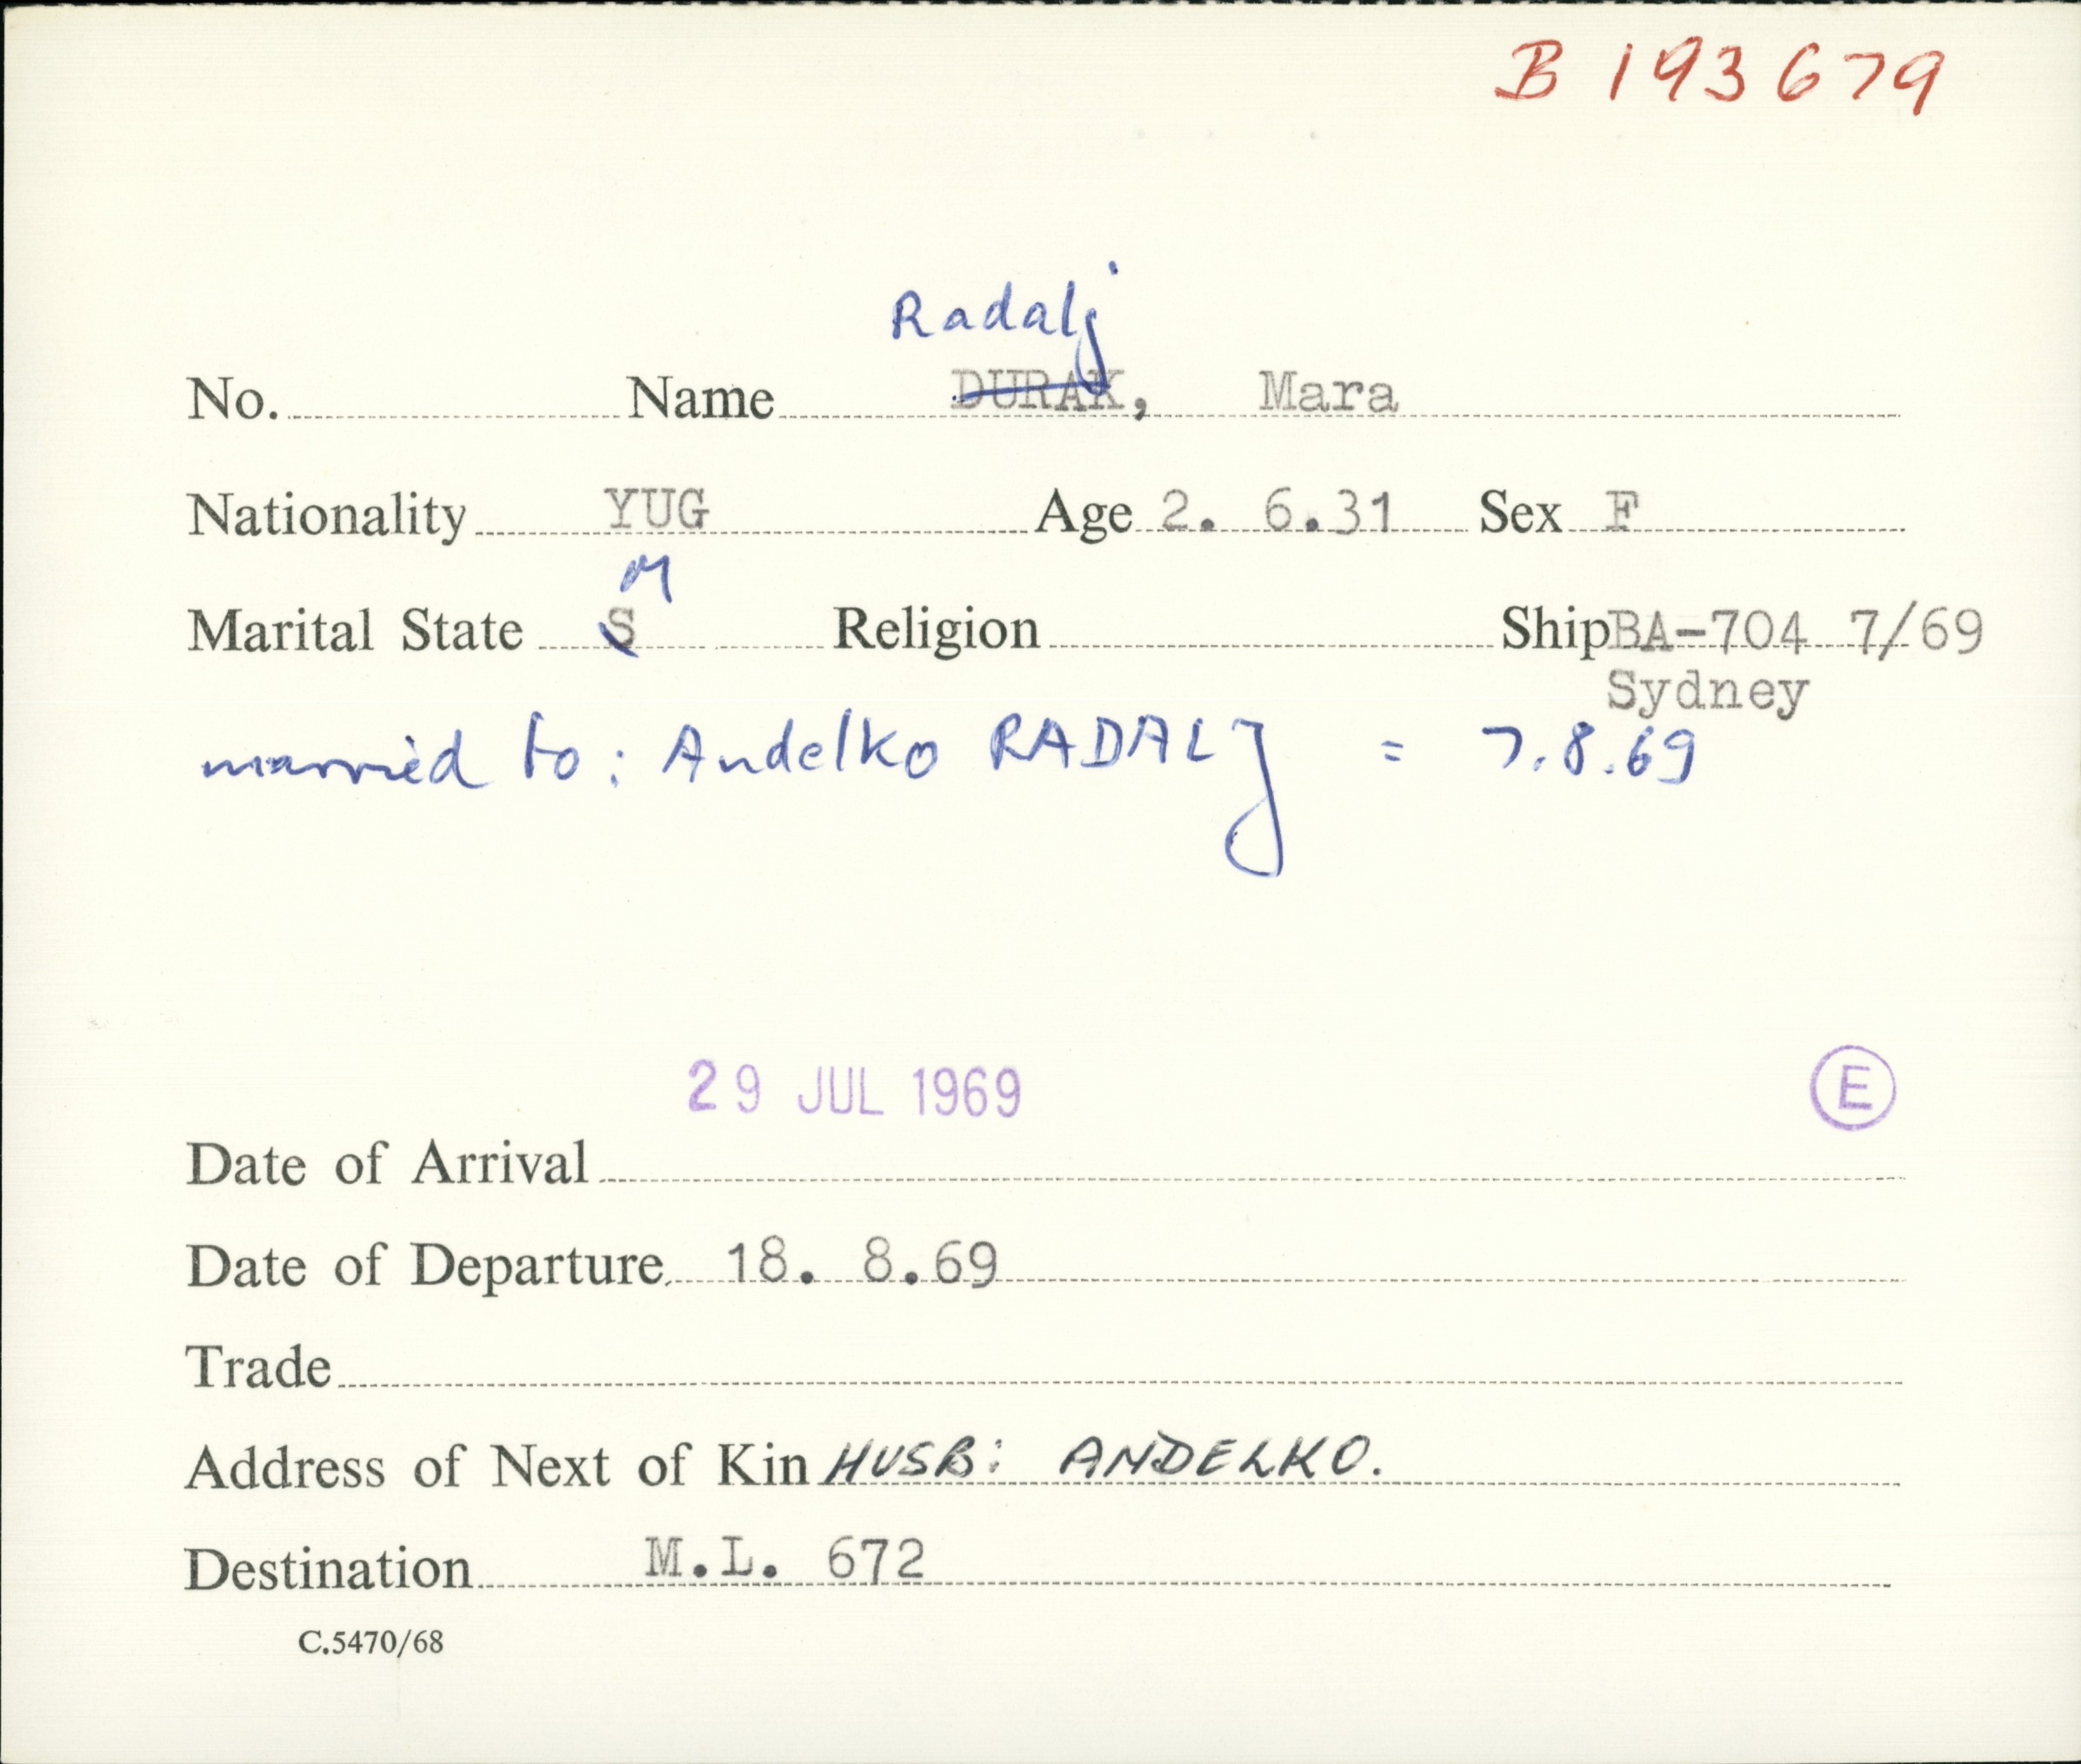 B 193679
Radalj
No. Name DURAK, Mara
Nationality YUG Age 2. 6.31 Sex F
M
Marital State S Religion Ship BA-704 7/69
Sydney
married to: Andelko RADALJ = 7.8.69
29 JUL 1969 E
Date of Arrival
Date of Departure 18. 8.69
Trade
Address of Next of Kin HUSB: ANDELKO.
Destination M.L. 672
C.5470/68